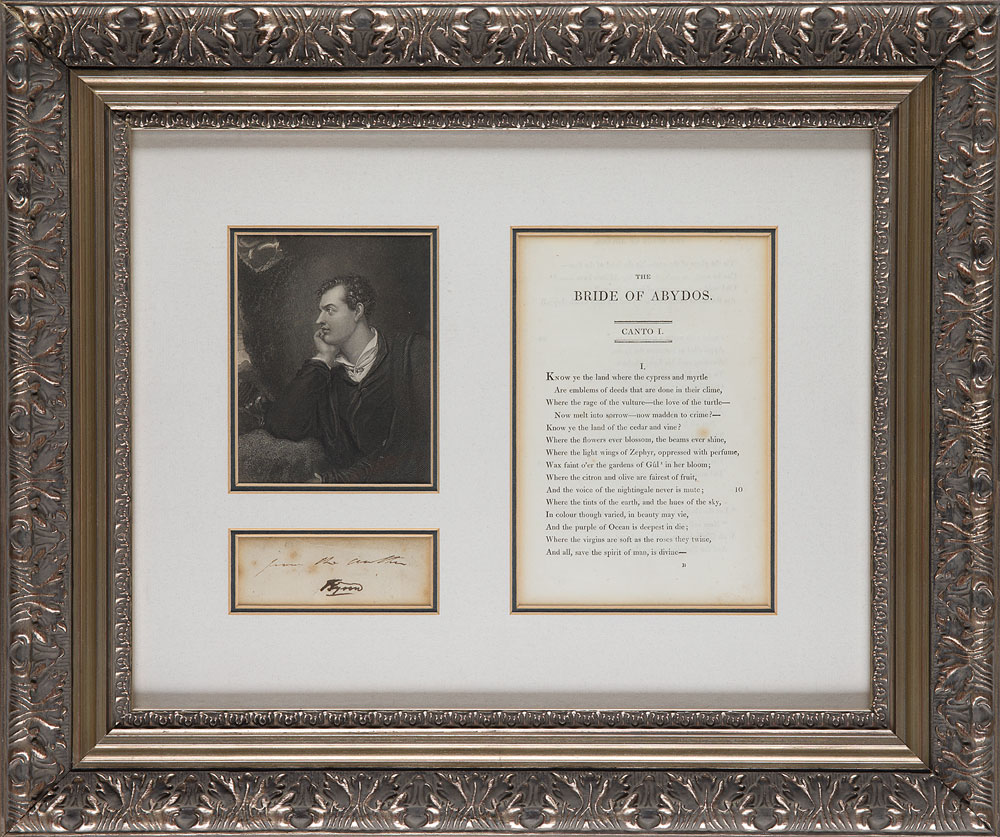 from the author
Byron
THE
BRIDE OF ABYDOS.
CANTO I.
I.
KNOW ye the land where the cypress and myrtle
Are emblems of deeds that are done in their clime,
Where the rage of the vulture—the love of the turtle—
Now melt into sorrow—now madden to crime?—
Know ye the land of the cedar and vine?
Where the flowers ever blossom, the beams ever shine,
Where the light wings of Zephyr, oppressed with perfume,
Wax faint o'er the gardens of Gúl¹ in her bloom;
Where the citron and olive are fairest of fruit,
And the voice of the nightingale never is mute; 10
Where the tints of the earth, and the hues of the sky,
In colour though varied, in beauty may vie,
And the purple of Ocean is deepest in die;
Where the virgins are soft as the roses they twine,
And all, save the spirit of man, is divine—
B